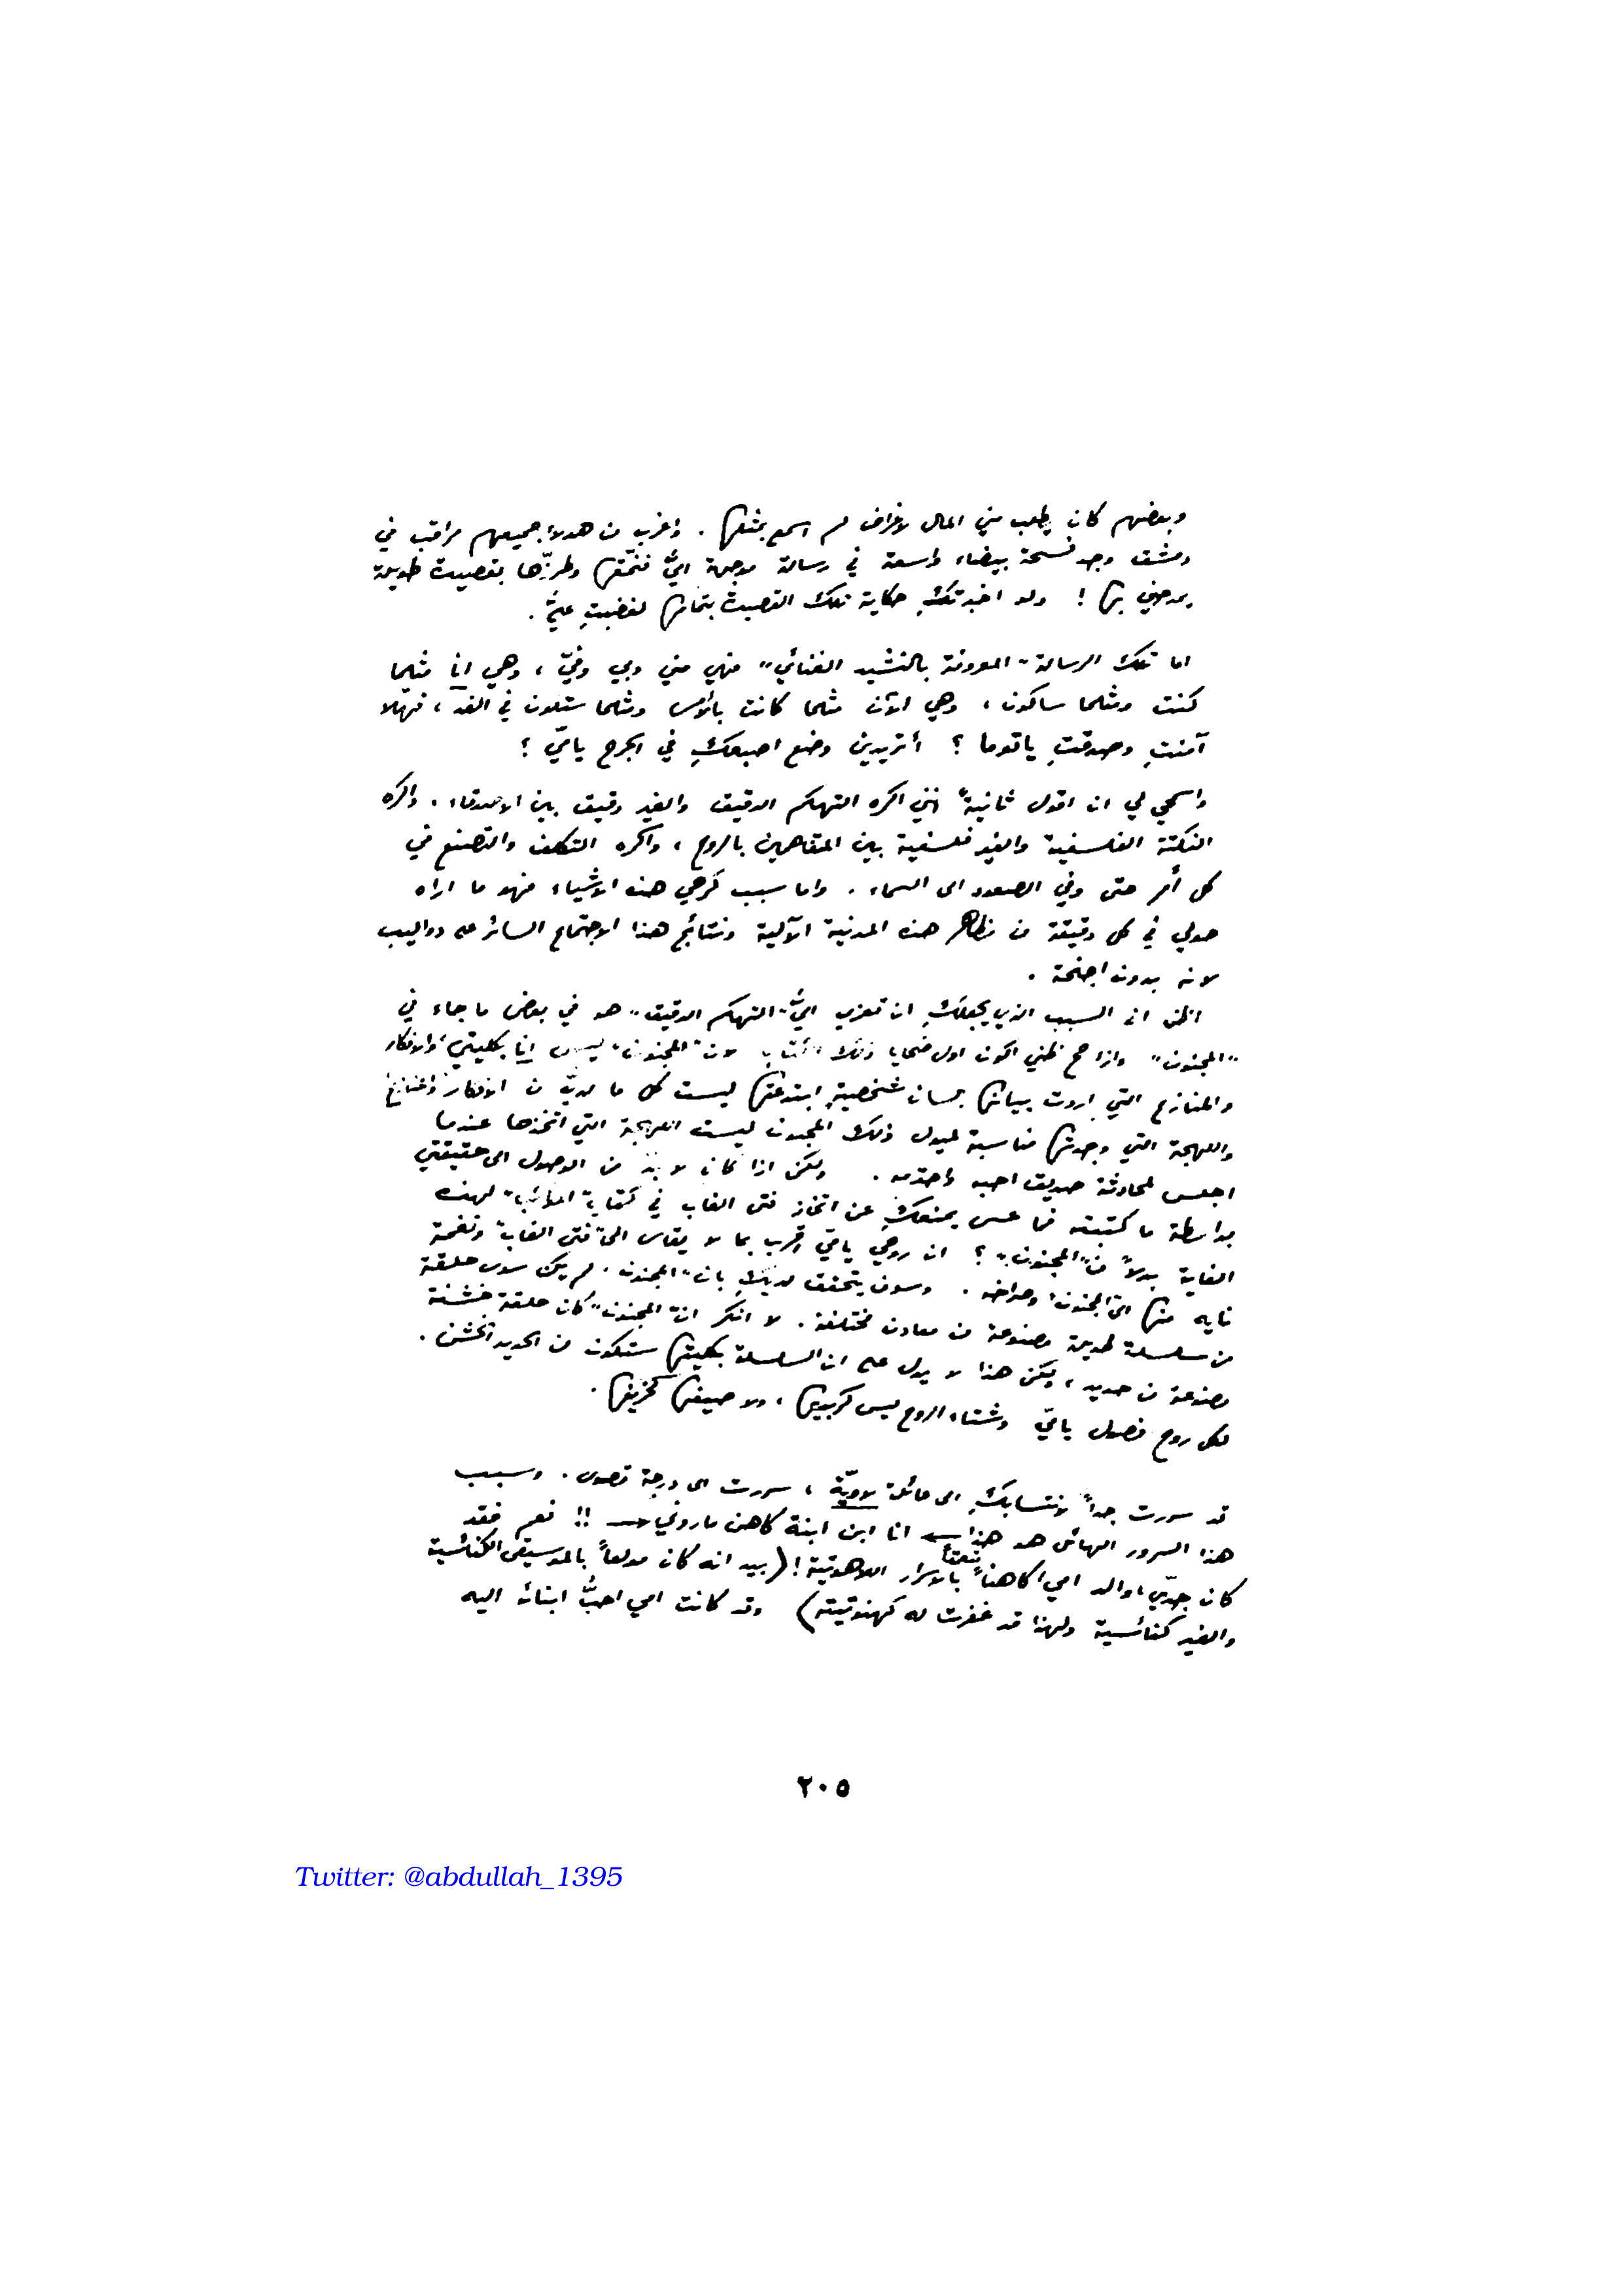 وبعضهم كان يطلب مني المال لاغراض لم اسمع بمثلها . واغرب من هولاء جميعهم مراقب في
دمشق وجد فسحة بيضاء واسعة في رسالة موجهة اليَّ فنمّقها وطرّزها بقصيدة طويلة
يمدحني بها ! ولو اخبرتكِ حكاية تلك القصيدة بتمامها لغضبتِ عليَّ .
اما تلك الرسالة - المعروفة بالنشيد الغنائي" فهي مني وبي وفيّ ، وهي انا مثلما
كنت ومثلما ساكون ، وهي الآن مثلما كانت بالامس ومثلما ستكون في الغد ، فهلا
آمنتِ وصدقتِ يا توما ؟ أتريدين وضع اصبعكِ في الجرح يا ميّ ؟
واسمحي لي ان اقول ثانيةً انني اكره التهكم الدقيق والغير دقيق بين الاصدقاء . واكره
النكتة الفلسفية والغير فلسفية بين المتفاهمين بالروح ، واكره التكلف والتصنع في
كل أمر حتى وفي الصعود الى السماء . واما سبب كرهي هذه الاشياء فهو ما اراه
حولي في كل دقيقة من مظاهر هذه المدنية الآلية ونتائج هذا الاجتماع السائر على دواليب
لانه بدون اجنحة .
اظن ان السبب الذي يجعلكِ ان تعزي اليَّ "التهكم الدقيق" هو في بعض ما جاء في
"المجنون" واذا صح ظني اكون اول ضحايا ذلك الكتاب لان "المجنون" ليس انا بكليتي، والافكار
والمنازع التي اردت بيانها بلسان شخصية ابتدعتها ليست كل ما لديّ من الافكار والمنازع
واللهجة التي وجدتها مناسبة لميول ذلك المجنون ليست اللهجة التي اتخذها عندما
اجلس لمحادثة صديق احبه واحترمه . ولكن اذا كان لا بدّ من الوصول الى حقيقتي
بواسطة ما كتبته فما عسى يمنعكِ عن اتخاذ فتى الغاب في كتاب "المواكب" لهذه
الغاية بدلاً من "المجنون" ؟ ان روحي يا ميّ اقرب بما لا يقاس الى "فتى الغاب" ونغمة
نايه منها الى "المجنون" وصراخه . وسوف يتحقق لديكِ بان "المجنون" لم يكن سوى حلقة
من سلسلة طويلة مصنوعة من معادن مختلفة . لا انكر ان "المجنون" كان حلقة خشنة
مصنوعة من حديد ، ولكن هذا لا يدل على ان السلسلة بكليتها ستكون من الحديد الخشن .
لكل روح فصول يا ميّ وشتاء الروح ليس كربيعها ، ولا صيفها كخريفها .
قد سررت جداً لانتسابكِ الى عائلة لاويّة ، سررت الى درجة قصوى . وسبب
هذا السرور الهائل هو هذا ← انا ابن ابنة كاهن ماروني → !! نعم فقد
كان جدّي، والد امي، كاهناً متعمقاً بالاسرار اللاهوتية ! (بيد انه كان مولعاً بالموسيقى الكنائسية
والغير كنائسية ولهذا قد غفرت له كهنوتيته) وقد كانت امي احبُّ ابنائه اليه
٢٠٥
Twitter: @abdullah_1395